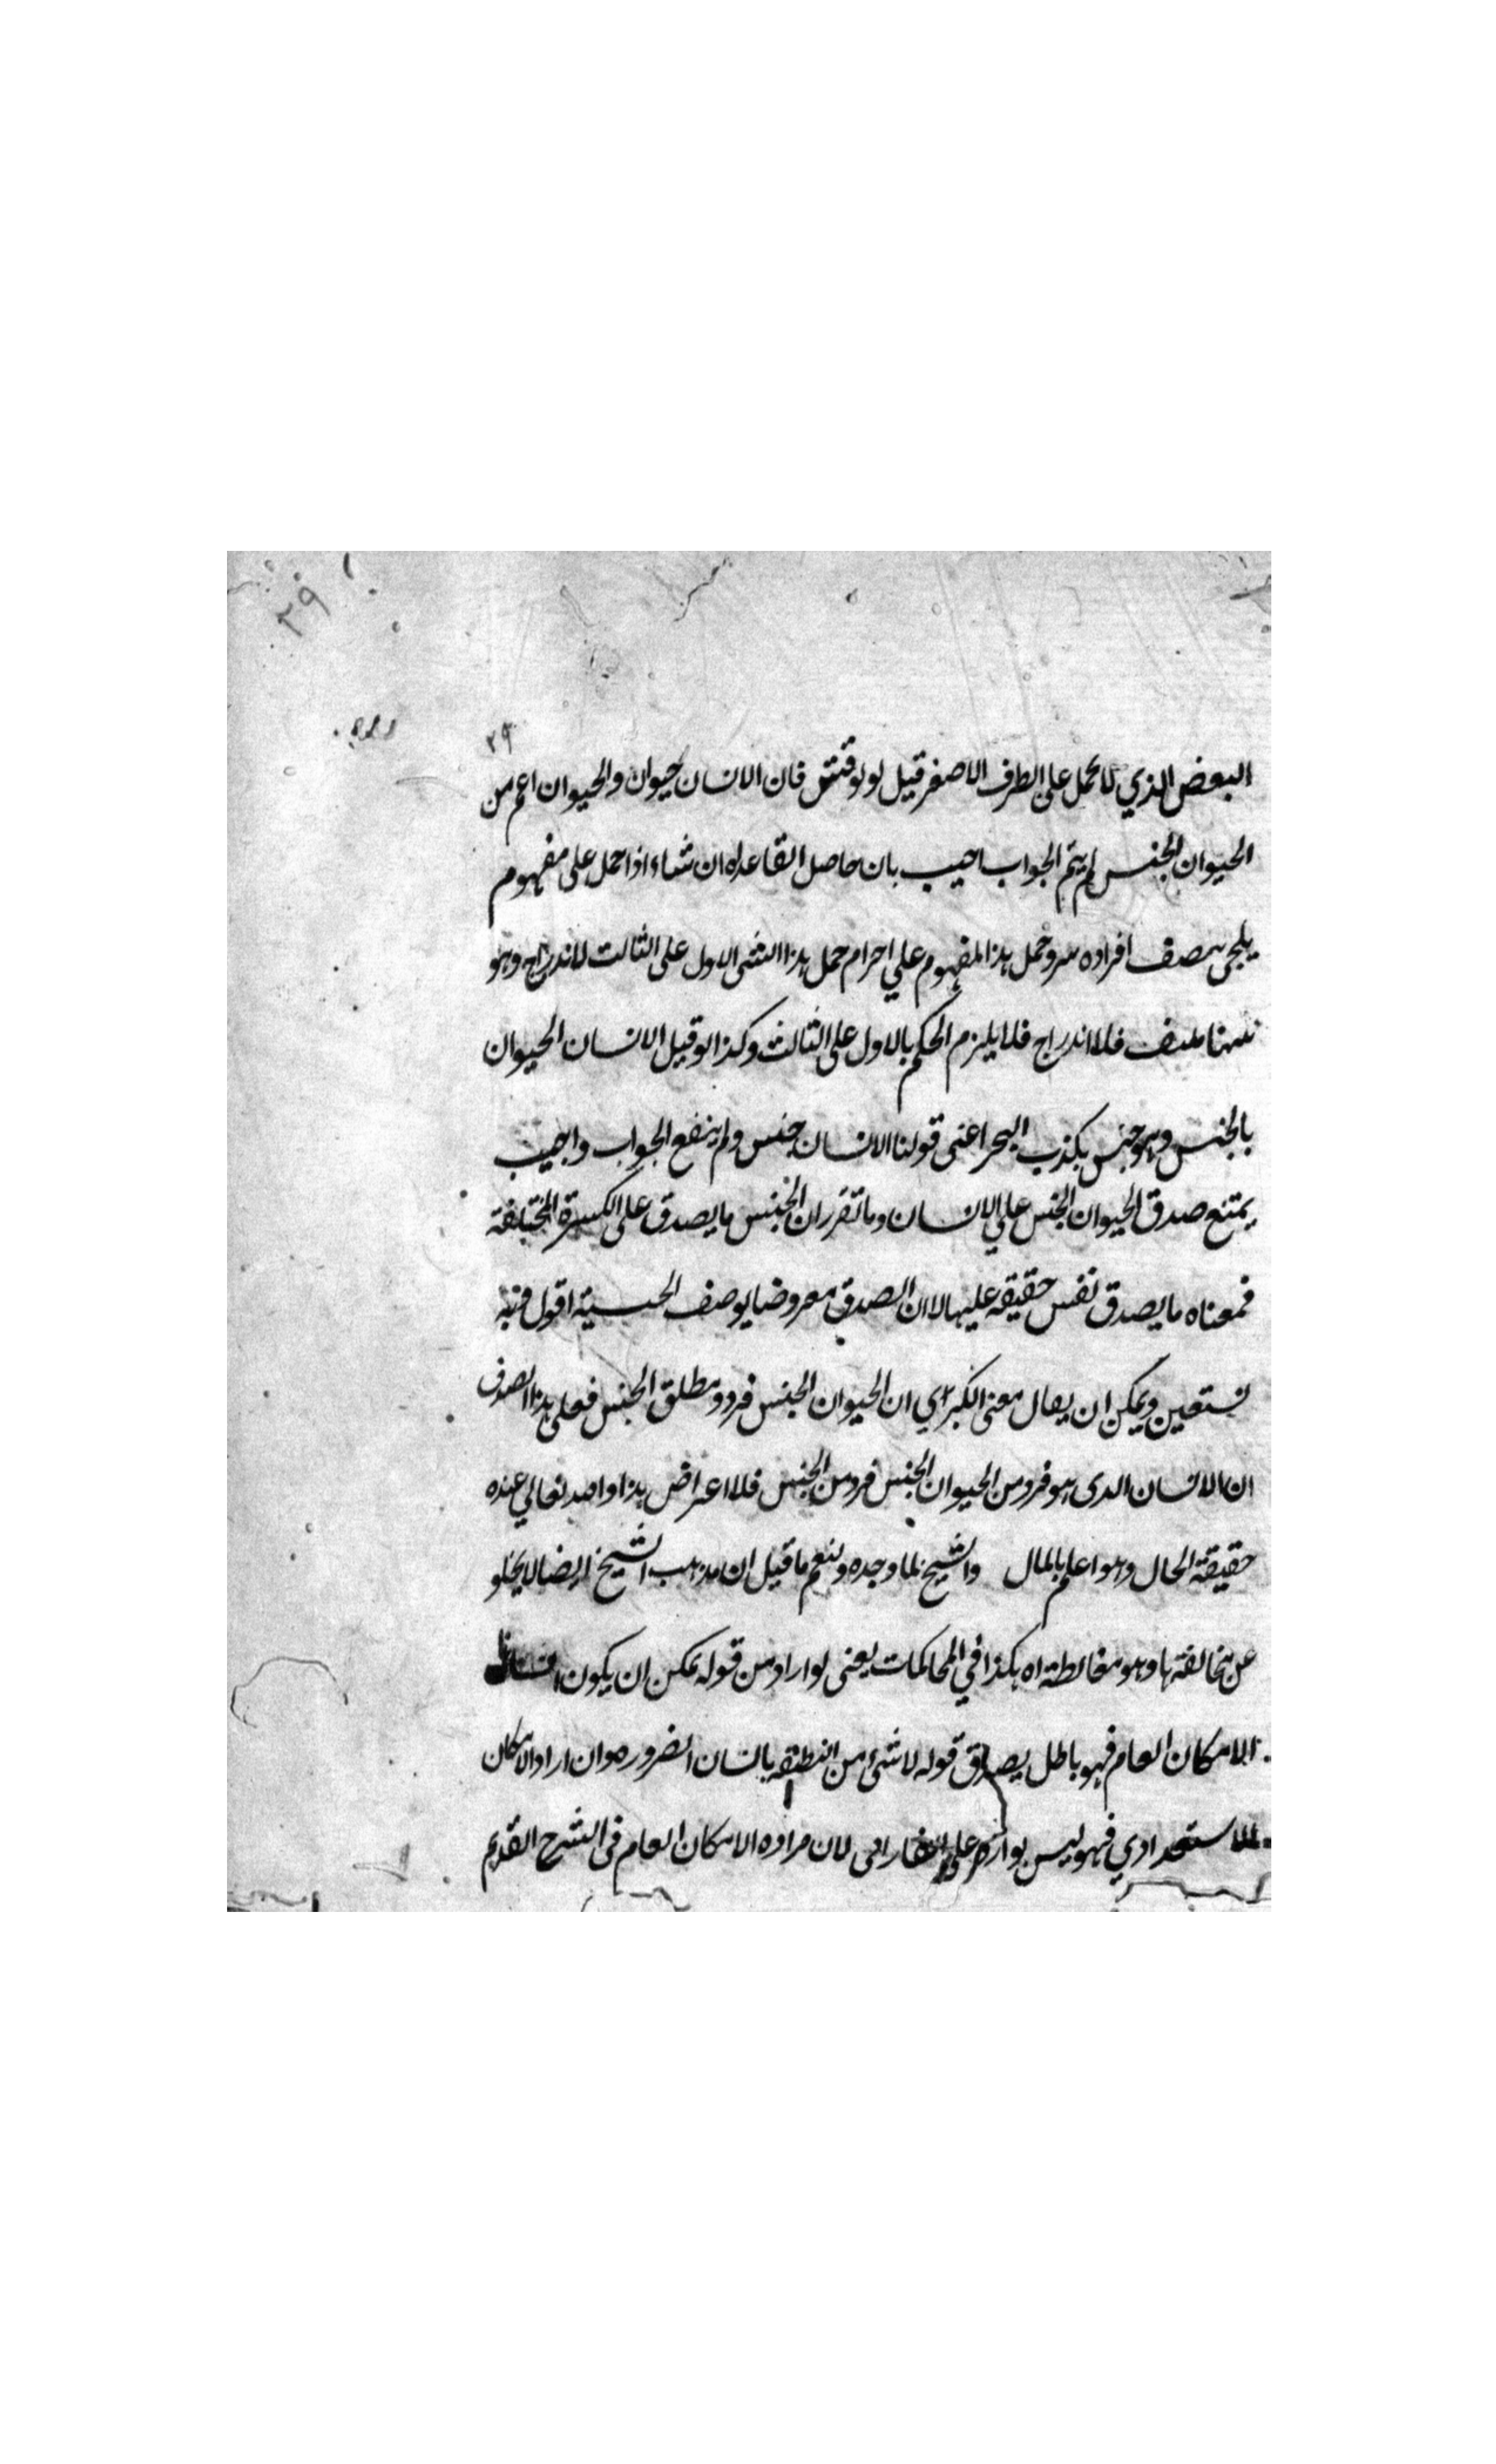 ٣٩
٣٩
البعض الذي لا يحمل على الطرف الاصغر قيل لو نوقش فان الانسان حيوان والحيوان اعم من
الحيوان الجنس لم يتم الجواب اجيب بان حاصل القاعدة ان شاء اذا حمل على مفهوم
افراده وحمل هذا المفهوم على حمل هذا الشى الاول على الثالث لاندراج وهو
فلا اندراج فلا يلزم الحكم بالاول على الثالث وكذا لو قيل الانسان الحيوان
بالجنس وهو جنس يكذب اعنى قولنا الانسان جنس ولم ينفع الجواب واجيب
يمتنع صدق الحيوان الجنس علي الانسان وما تقرر ان الجنس ما يصدق على الكسرة المختلفة
فمعناه ما يصدق نفس حقيقة عليها لا ان الصدق معروضا بوصف اقول وبه
نستعين ويمكن ان يقال معنى الكبراي ان الحيوان الجنس فرد ومطلق الجنس فعلى هذا الصدق
ان الانسان الذى هو فرد من الحيوان الجنس فرد من الجنس فلا اعتراض هذا والله تعالي عنده
حقيقة الحال وهو اعلم بالمال والشيخ لما وجده ولنعم ما قيل ان مذهب الشيخ ايضا لا يخلو
عن مخالفتها وهو مغالطة اه هكذا في المحاكمات يعنى لو اراد من قوله يمكن ان يكون انسانا
الامكان العام فهو باطل يصدق قوله لا شئ من النطفة بانسان الضروره وان اراد الامكان
الاستعدادي فهو ليس بوارد على لان مراده الامكان العام فى الشرح القديم